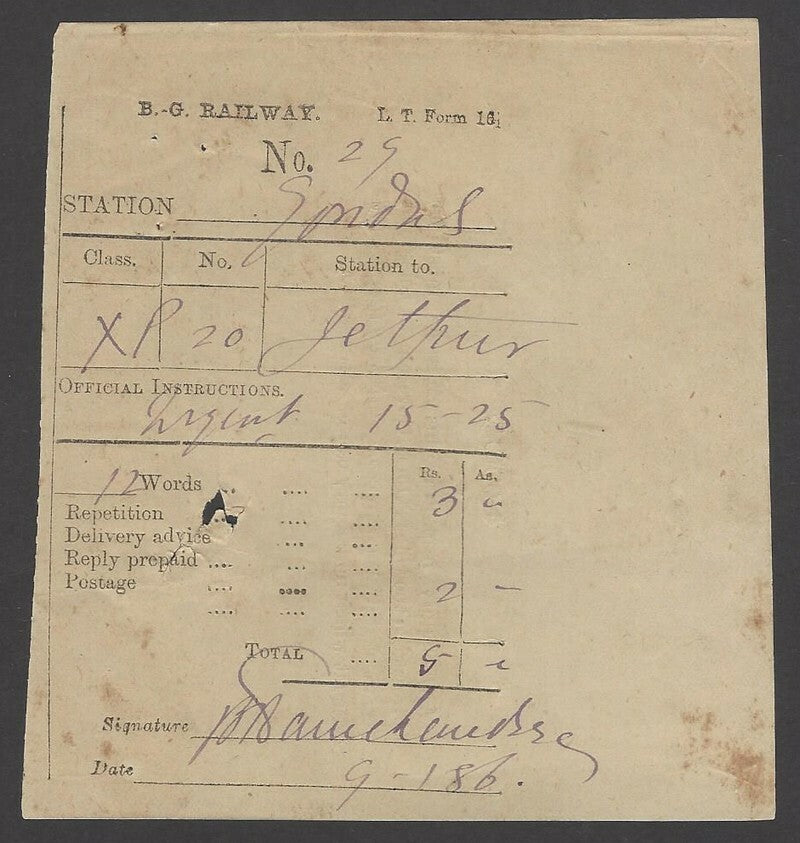 B.-G. RAILWAY. L. T. Form 16
No. 29
STATION Gondal
Class. No. Station to.
XP 20 Jetpur
OFFICIAL INSTRUCTIONS.
Urgent 15-25
12 Words .. .... .... Rs. 3 As. "
Repetition .... ....
Delivery advice ... ...
Reply prepaid .... .... ....
Postage .... .... 2 -
.... .... ....
TOTAL .... 5 "
Signature Ramchandra
Date 9-1 86.